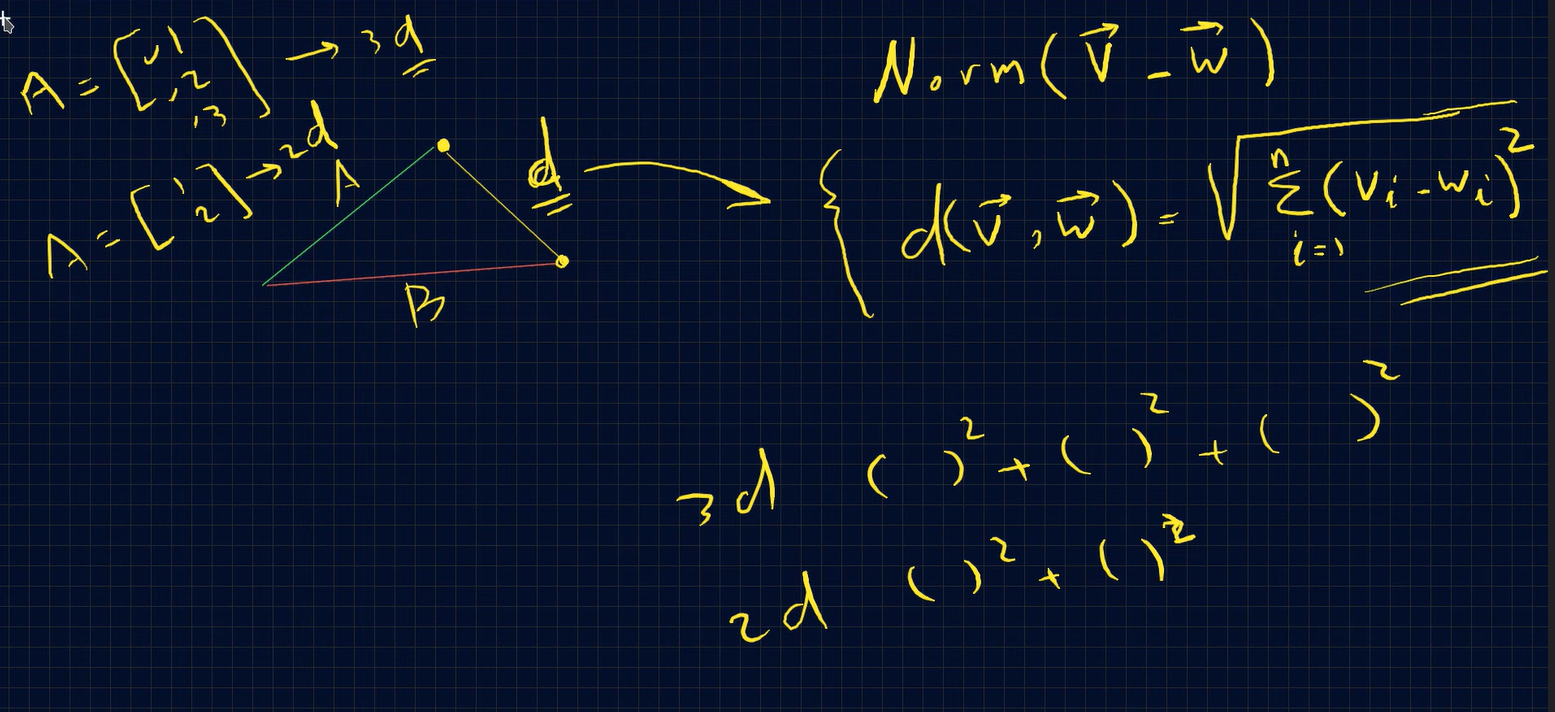 A = [1, 2, 3] → 3d
A = [1, 2] → 2d
A
B
d
Norm(v⃗ - w⃗)
d(v⃗, w⃗) = √∑ⁿᵢ₌₁(vᵢ - wᵢ)²
3d ( )² + ( )² + ( )²
2d ( )² + ( )²